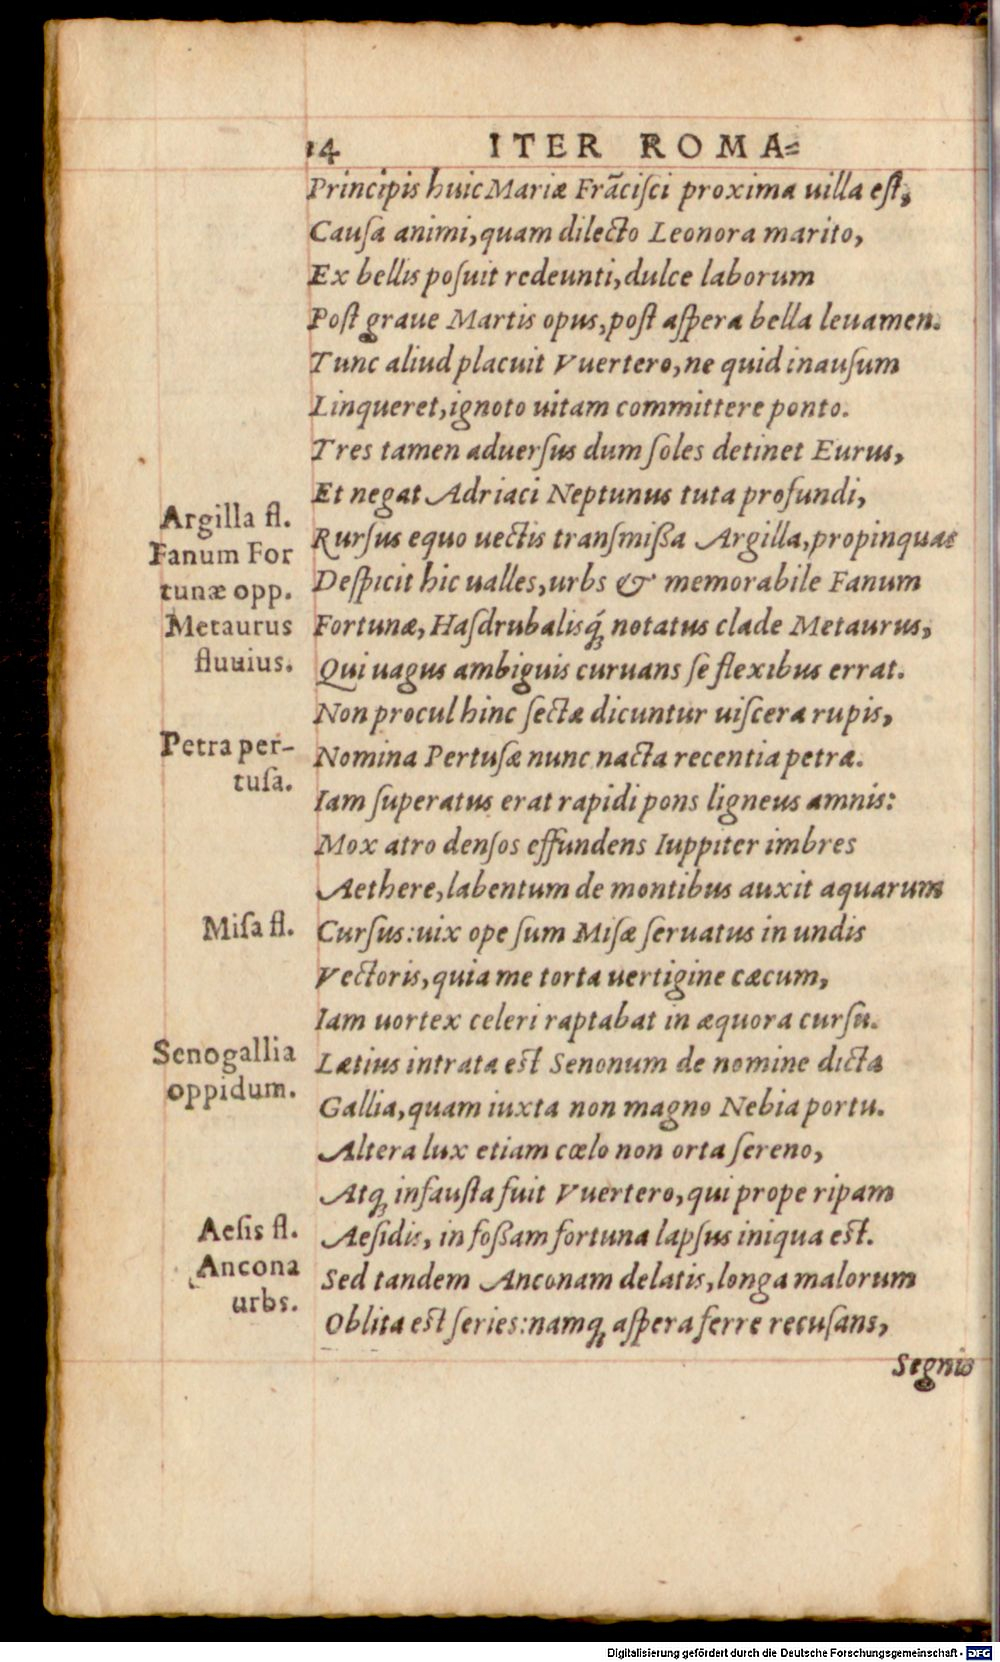 14 ITER ROMA=
Principis huic Mariæ Frãciſci proxima uilla eſt,
Cauſa animi, quam dilecto Leonora marito,
Ex bellis poſuit redeunti, dulce laborum
Poſt graue Martis opus, poſt aſpera bella leuamen.
Tunc aliud placuit Vuertero, ne quid inauſum
Linqueret, ignoto uitam committere ponto.
Tres tamen aduerſus dum ſoles detinet Eurus,
Et negat Adriaci Neptunus tuta profundi,
Argilla fl.
Rurſus equo uectis tranſmißa Argilla, propinquas
Fanum For
tunæ opp.
Deſpicit hic ualles, urbs & memorabile Fanum
Metaurus
fluuius.
Fortunæ, Haſdrubalisq́ꝫ notatus clade Metaurus,
Qui uagus ambiguis curuans ſe flexibus errat.
Non procul hinc ſectæ dicuntur uiſcera rupis,
Petra per-
tuſa.
Nomina Pertuſæ nunc nacta recentia petræ.
Iam ſuperatus erat rapidi pons ligneus amnis:
Mox atro denſos effundens Iuppiter imbres
Aethere, labentum de montibus auxit aquarum
Miſa fl.
Curſus: uix ope ſum Miſæ ſeruatus in undis
Vectoris, quia me torta uertigine cæcum,
Iam uortex celeri raptabat in æquora curſu.
Senogallia
oppidum.
Lætius intrata est Senonum de nomine dicta
Gallia, quam iuxta non magno Nebia portu.
Altera lux etiam cœlo non orta ſereno,
Atqꝫ infauſta fuit Vuertero, qui prope ripam
Aeſis fl.
Aeſidis, in foßam fortuna lapſus iniqua est.
Ancona
urbs.
Sed tandem Anconam delatis, longa malorum
Oblita est ſeries: namqꝫ aſpera ferre recuſans,
Segnis
Digitalisierung gefördert durch die Deutsche Forschungsgemeinschaft - DFG